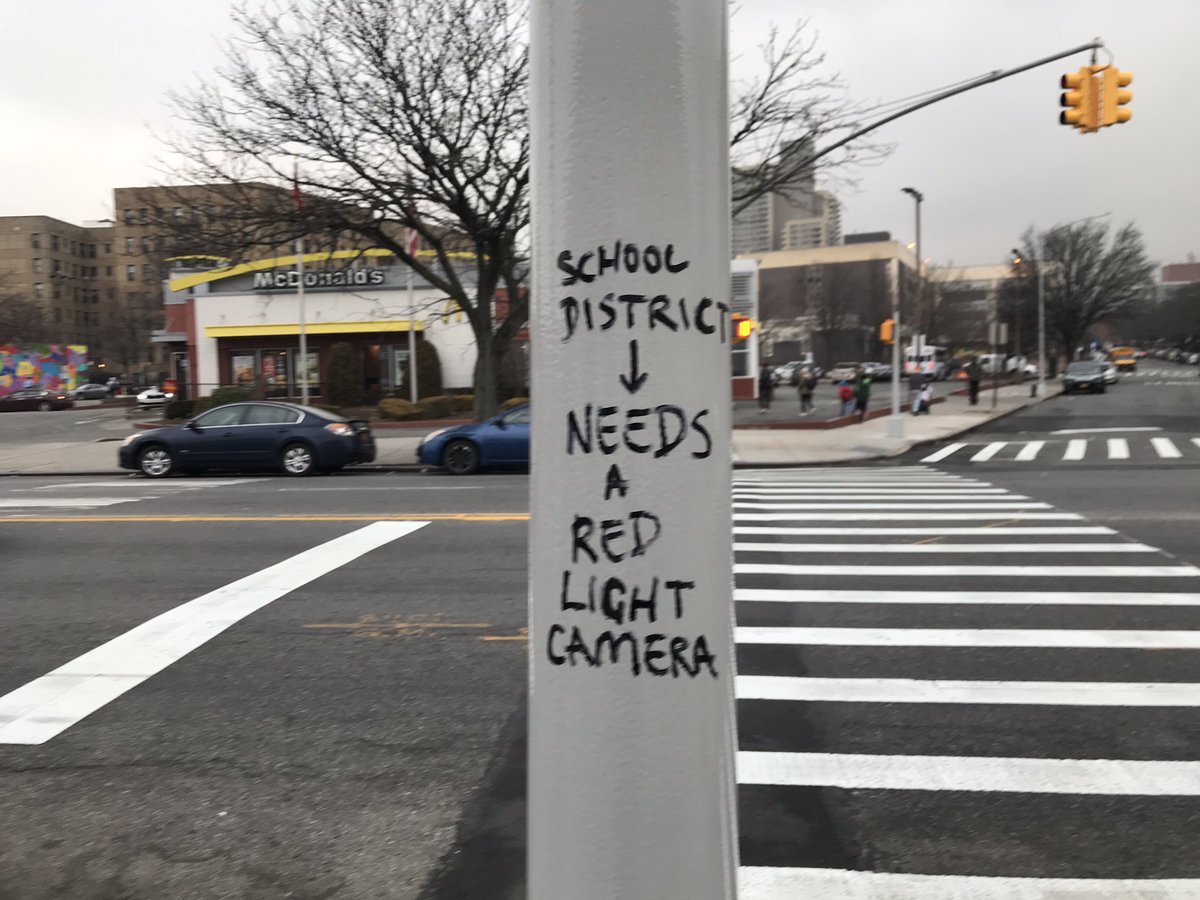 McDonald's
SCHOOL
DISTRICT
↓
NEEDS
A
RED
LIGHT
CAMERA